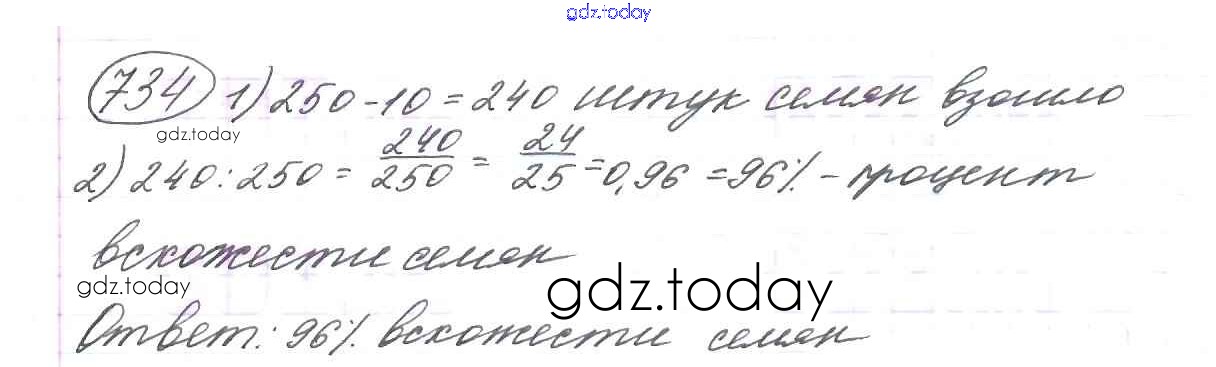 gdz.today
734 1) 250 - 10 = 240 штук семян взошло
gdz.today
2) 240 : 250 = 240/250 = 24/25 = 0,96 = 96% - процент
всхожести семян
gdz.today
gdz.today
Ответ: 96% всхожести семян